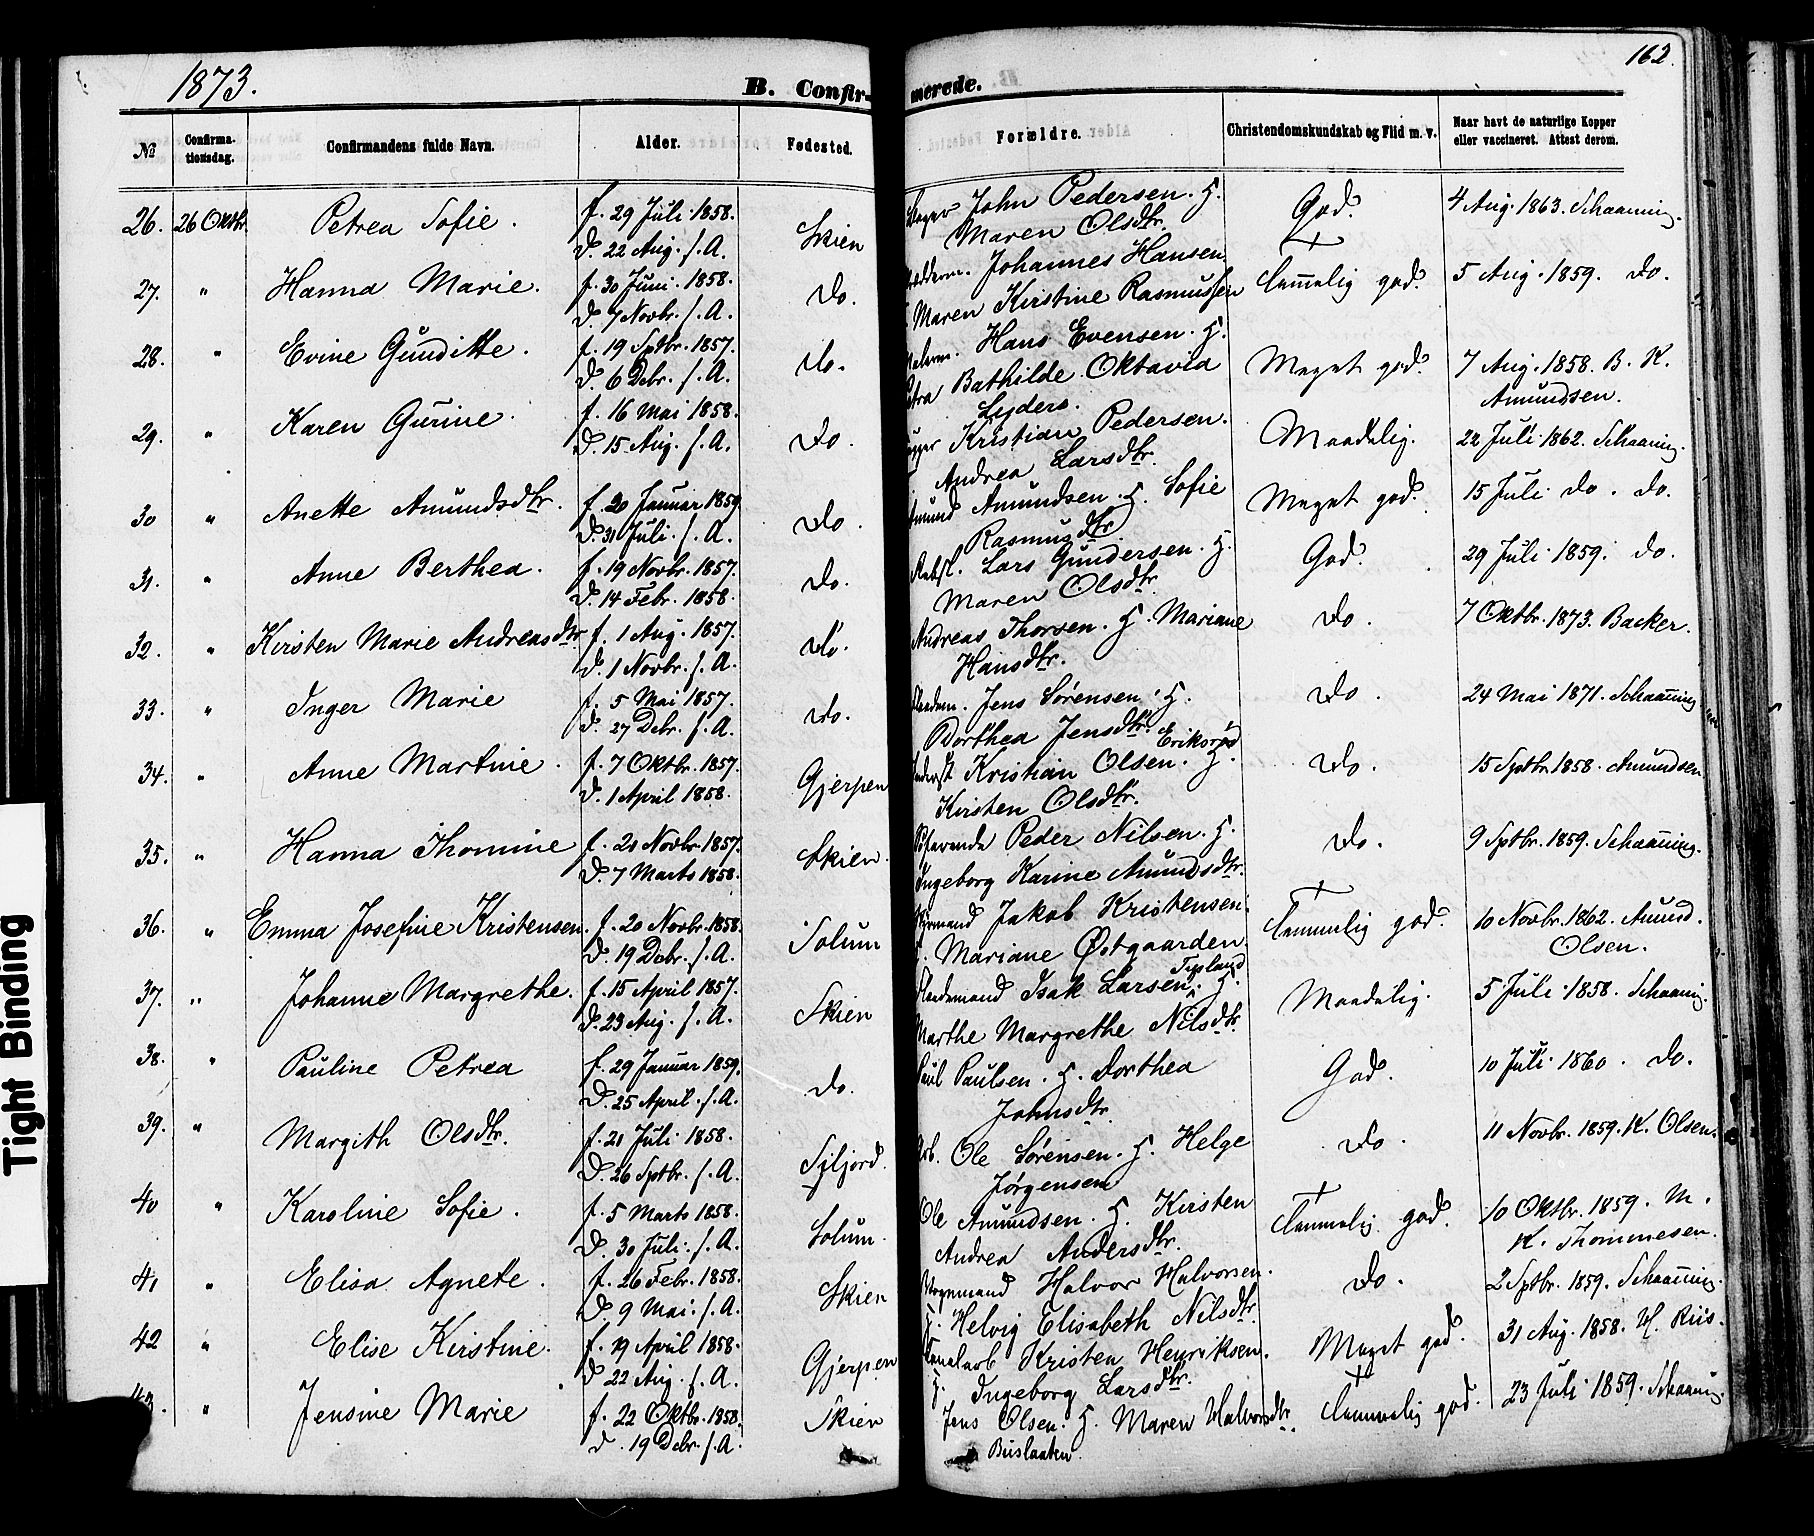 1873.
162.
B. Confir-
merede.
№
Confirma-
tionsdag.
Confirmandens fulde Navn.
Alder.
Fødested.
Forældre.
Christendomskundskab og Flid m. v.
Naar havt de naturlige Kopper
eller vaccineret. Attest derom.
26. 26 Oktbr. Petrea Sofie. f. 29 Juli 1858. John Pedersen. H. God. 4 Aug. 1863. Schaaning.
D. 22 Aug. s. A. Skien Maren Olsdtr.
27. " Hanna Marie. f. 30 Juni 1858. Johannes Hansen Temmelig god. 5 Aug. 1859. do.
D. 7 Novbr. s. A. do. Maren Kirstine Rasmussen
28. " Evine Gunditte. f. 19 Sptbr. 1857. Hans Evensen. H. Meget god. 7 Aug. 1858. B. K.
D. 6 Debr. s. A. do. Bathilde Oktavia Amundsen.
Lyders.
29. " Karen Gurine. f. 16 Mai 1858. Kristian Pedersen. Maadelig. 22 Juli 1862. Schaaning.
D. 15 Aug. s. A. do. Andrea Larsdtr.
30 " Anette Amundsdtr. f. 20 Januar 1859 Amundsen. H. Sofie Meget god. 15 Juli do. do.
D. 31 Juli. s. A. do. Rasmusdtr.
31. " Anne Berthea. f. 19 Novbr. 1857. Lars Gundersen. H. God. 29 Juli 1859. do.
D. 14 Febr. 1858. do. Maren Olsdtr.
32. " Kirsten Marie Andreasdtr. f. 1 Aug. 1857. Andreas Thorsen. H. Mariane do. 7 Oktbr. 1873. Backer.
D. 1 Novbr. s. A. do. Hansdtr.
33. " Inger Marie f. 5 Mai 1857. Jens Sørensen. H. do. 24 Mai 1871. Schaaning
D. 27 Debr. s. A. do. Dorthea Jensdtr.
Eriksrød
34. " Anne Martine. f. 7 Oktbr. 1857. Kristian Olsen. H. do. 15 Sptbr. 1858. Amundsen
D. 1 April 1858. Gjerpen Kirsten Olsdtr.
35. " Hanna Thomine f. 20 Novbr. 1857. Peder Nilsen. H. do. 9 Sptbr. 1859. Schaaning.
D. 7 Marts 1858. Skien. Ingeborg Karine Amundsdtr.
36. " Emma Josefine Kristensen. f. 20 Novbr. 1858. Jakob Kristensen. Temmelig god. 10 Novbr. 1862. Amund.
D. 19 Debr. s. A. Solum Mariane Østgaarden. Olsen.
37. " Johanne Margrethe. f. 15 April 1857. Isak Larsen. H. Maadelig. 5 Juli 1858. Schaaning.
D. 23 Aug. s. A. Skien Marthe Margrethe Nilsdtr.
38. " Pauline Petrea f. 29 Januar 1859. Paul Paulsen. H. Dorthea God. 10 Juli 1860. do.
D. 25 April. s. A. do. Johnsdtr.
39. " Margith Olsdtr. f. 21 Juli 1858. Arb. Ole Sørensen. H. Helge do. 11 Novbr. 1859. K. Olsen.
D. 26 Sptbr. s. A. Siljord. Jørgensen
40 " Karoline Sofie. f. 5 Marts 1858. Ole Amundsen. H. Kirsten Temmelig god. 10 Oktbr. 1859. M.
D. 30 Juli. s. A. Solum. Andrea Andersdtr. K. Thommesen.
41 " Elisa Agnete. f. 26 Febr. 1858. Halvor Halvorsen. do. 2 Sptbr. 1859. Schaaning.
D. 9 Mai. s. A. Skien H. Helvig Elisabeth Nilsdtr.
42 " Elise Kirstine. f. 19 April 1858. Kristen Henriksen. Meget god. 31 Aug. 1858. H. Riis.
D. 22 Aug. s. A. Gjerpen H. Ingeborg Larsdtr.
43. " Jensine Marie f. 22 Oktbr. 1858. Jens Olsen. H. Maren Halvorsdtr. Temmelig god. 23 Juli 1859. Schaaning
D. 19 Debr. s. A. Skien
Tight Binding